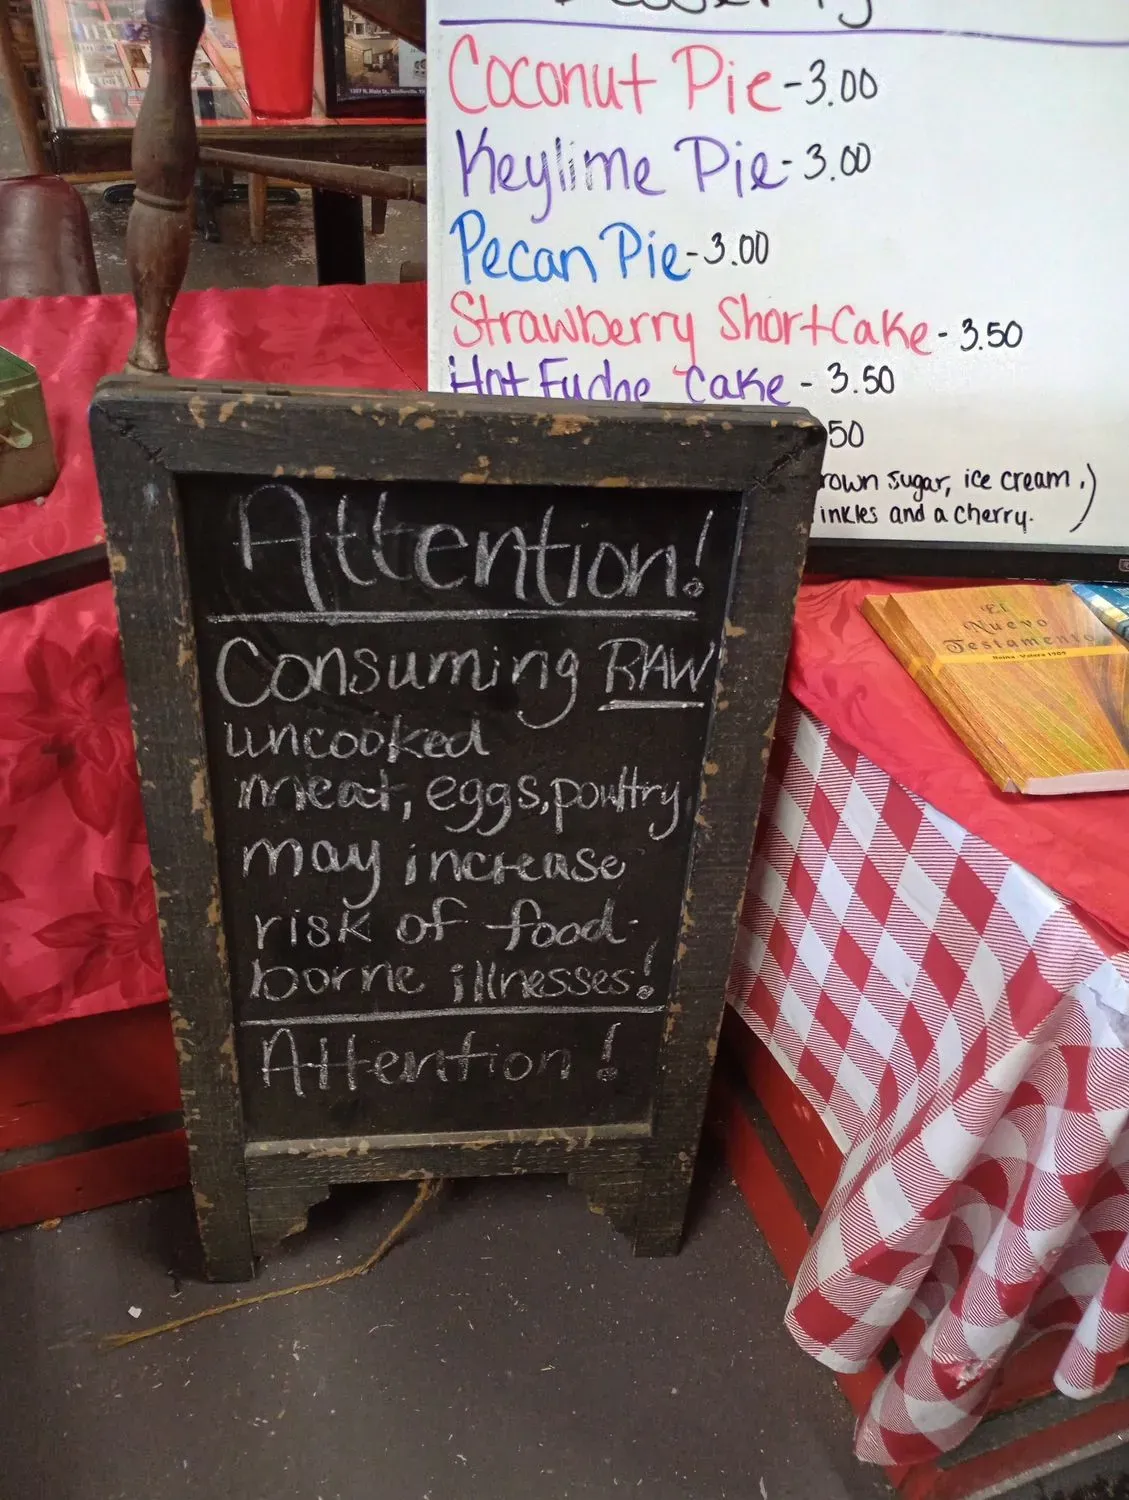 Coconut Pie - 3.00
Keylime Pie - 3.00
Pecan Pie - 3.00
Strawberry ShortCake - 3.50
Hot Fudge Cake - 3.50
50
sugar, ice cream,)
and a cherry.
Attention!
Consuming RAW
uncooked
meat, eggs, poultry
may increase
risk of food-
borne illnesses!
Attention!
El
Nuevo
Testamento
Reina-Valera 1909